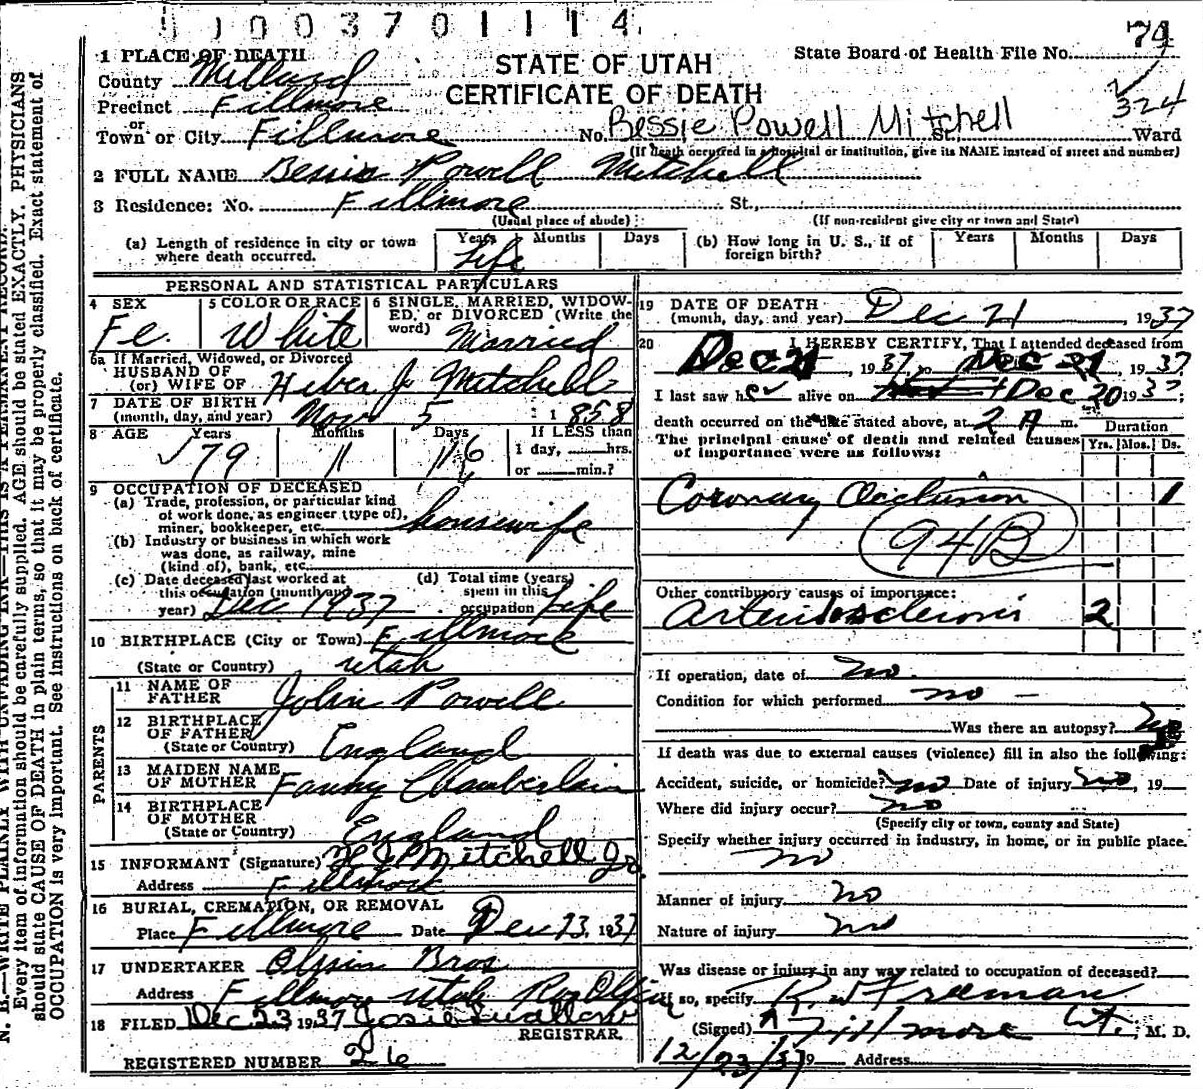 1003701114
1 PLACE OF DEATH
County Millard
Precinct Fillmore
or
Town or City Fillmore
STATE OF UTAH
CERTIFICATE OF DEATH
State Board of Health File No. 74
324
No. Bessie Powell Mitchell St. Ward
(If death occurred in a hospital or institution, give its NAME instead of street and number)
2 FULL NAME Bessie Powell Mitchell
3 Residence: No. Fillmore St.,
(Usual place of abode) (If non-resident give city or town and State)
(a) Length of residence in city or town where death occurred. Years Life Months Days
(b) How long in U. S., if of foreign birth? Years Months Days
PERSONAL AND STATISTICAL PARTICULARS
4 SEX Fe.
5 COLOR OR RACE White
6 SINGLE, MARRIED, WIDOWED, or DIVORCED (Write the word) Married
6a If Married, Widowed, or Divorced
HUSBAND OF
(or) WIFE OF Heber J Mitchell
7 DATE OF BIRTH
(month, day, and year) Nov 5 1858
8 AGE Years 79 Months 11 Days 16
If LESS than
1 day, hrs.
or min.?
9 OCCUPATION OF DECEASED
(a) Trade, profession, or particular kind
of work done, as engineer (type of),
miner, bookkeeper, etc. housewife
(b) Industry or business in which work
was done, as railway, mine
(kind of), bank, etc.
(c) Date deceased last worked at
this occupation (month and
year) Dec 1937
(d) Total time (years)
spent in this
occupation Life
10 BIRTHPLACE (City or Town) Fillmore
(State or Country) Utah
PARENTS
11 NAME OF
FATHER John Powell
12 BIRTHPLACE
OF FATHER
(State or Country) England
13 MAIDEN NAME
OF MOTHER Fanny Chamberlain
14 BIRTHPLACE
OF MOTHER
(State or Country) England
15 INFORMANT (Signature) H J Mitchell Jr.
Address Fillmore
16 BURIAL, CREMATION, OR REMOVAL
Place Fillmore Date Dec 23, 1937
17 UNDERTAKER Olpin Bros
Address Fillmore Utah Roy Olpin
18 FILED Dec 23 1937 Josie Swallow
REGISTRAR
REGISTERED NUMBER 26
19 DATE OF DEATH
(month, day, and year) Dec 21, 1937
20 I HEREBY CERTIFY, That I attended deceased from
Dec 21, 1937, to Dec 21, 1937
I last saw her alive on Dec 20 1937;
death occurred on the date stated above, at 2 A m.
The principal cause of death and related causes
of importance were as follows:
Duration
Yrs. Mos. Ds.
Coronary Occlusion 1
94B
Other contributory causes of importance:
Arteriosclerosis 2
If operation, date of no
Condition for which performed no -
Was there an autopsy? no
If death was due to external causes (violence) fill in also the following:
Accident, suicide, or homicide? no Date of injury no, 19
Where did injury occur? no
(Specify city or town, county and State)
Specify whether injury occurred in industry, in home, or in public place.
no
Manner of injury no
Nature of injury no
Was disease or injury in any way related to occupation of deceased?
If so, specify R W Freeman
(Signed) Fillmore Ut. M. D.
12/23/37 19 Address
N. B.—WRITE PLAINLY WITH UNFADING INK—THIS IS A PERMANENT RECORD.
Every item of information should be carefully supplied. AGE should be stated EXACTLY. PHYSICIANS
should state CAUSE OF DEATH in plain terms, so that it may be properly classified. Exact statement of
OCCUPATION is very important. See instructions on back of certificate.